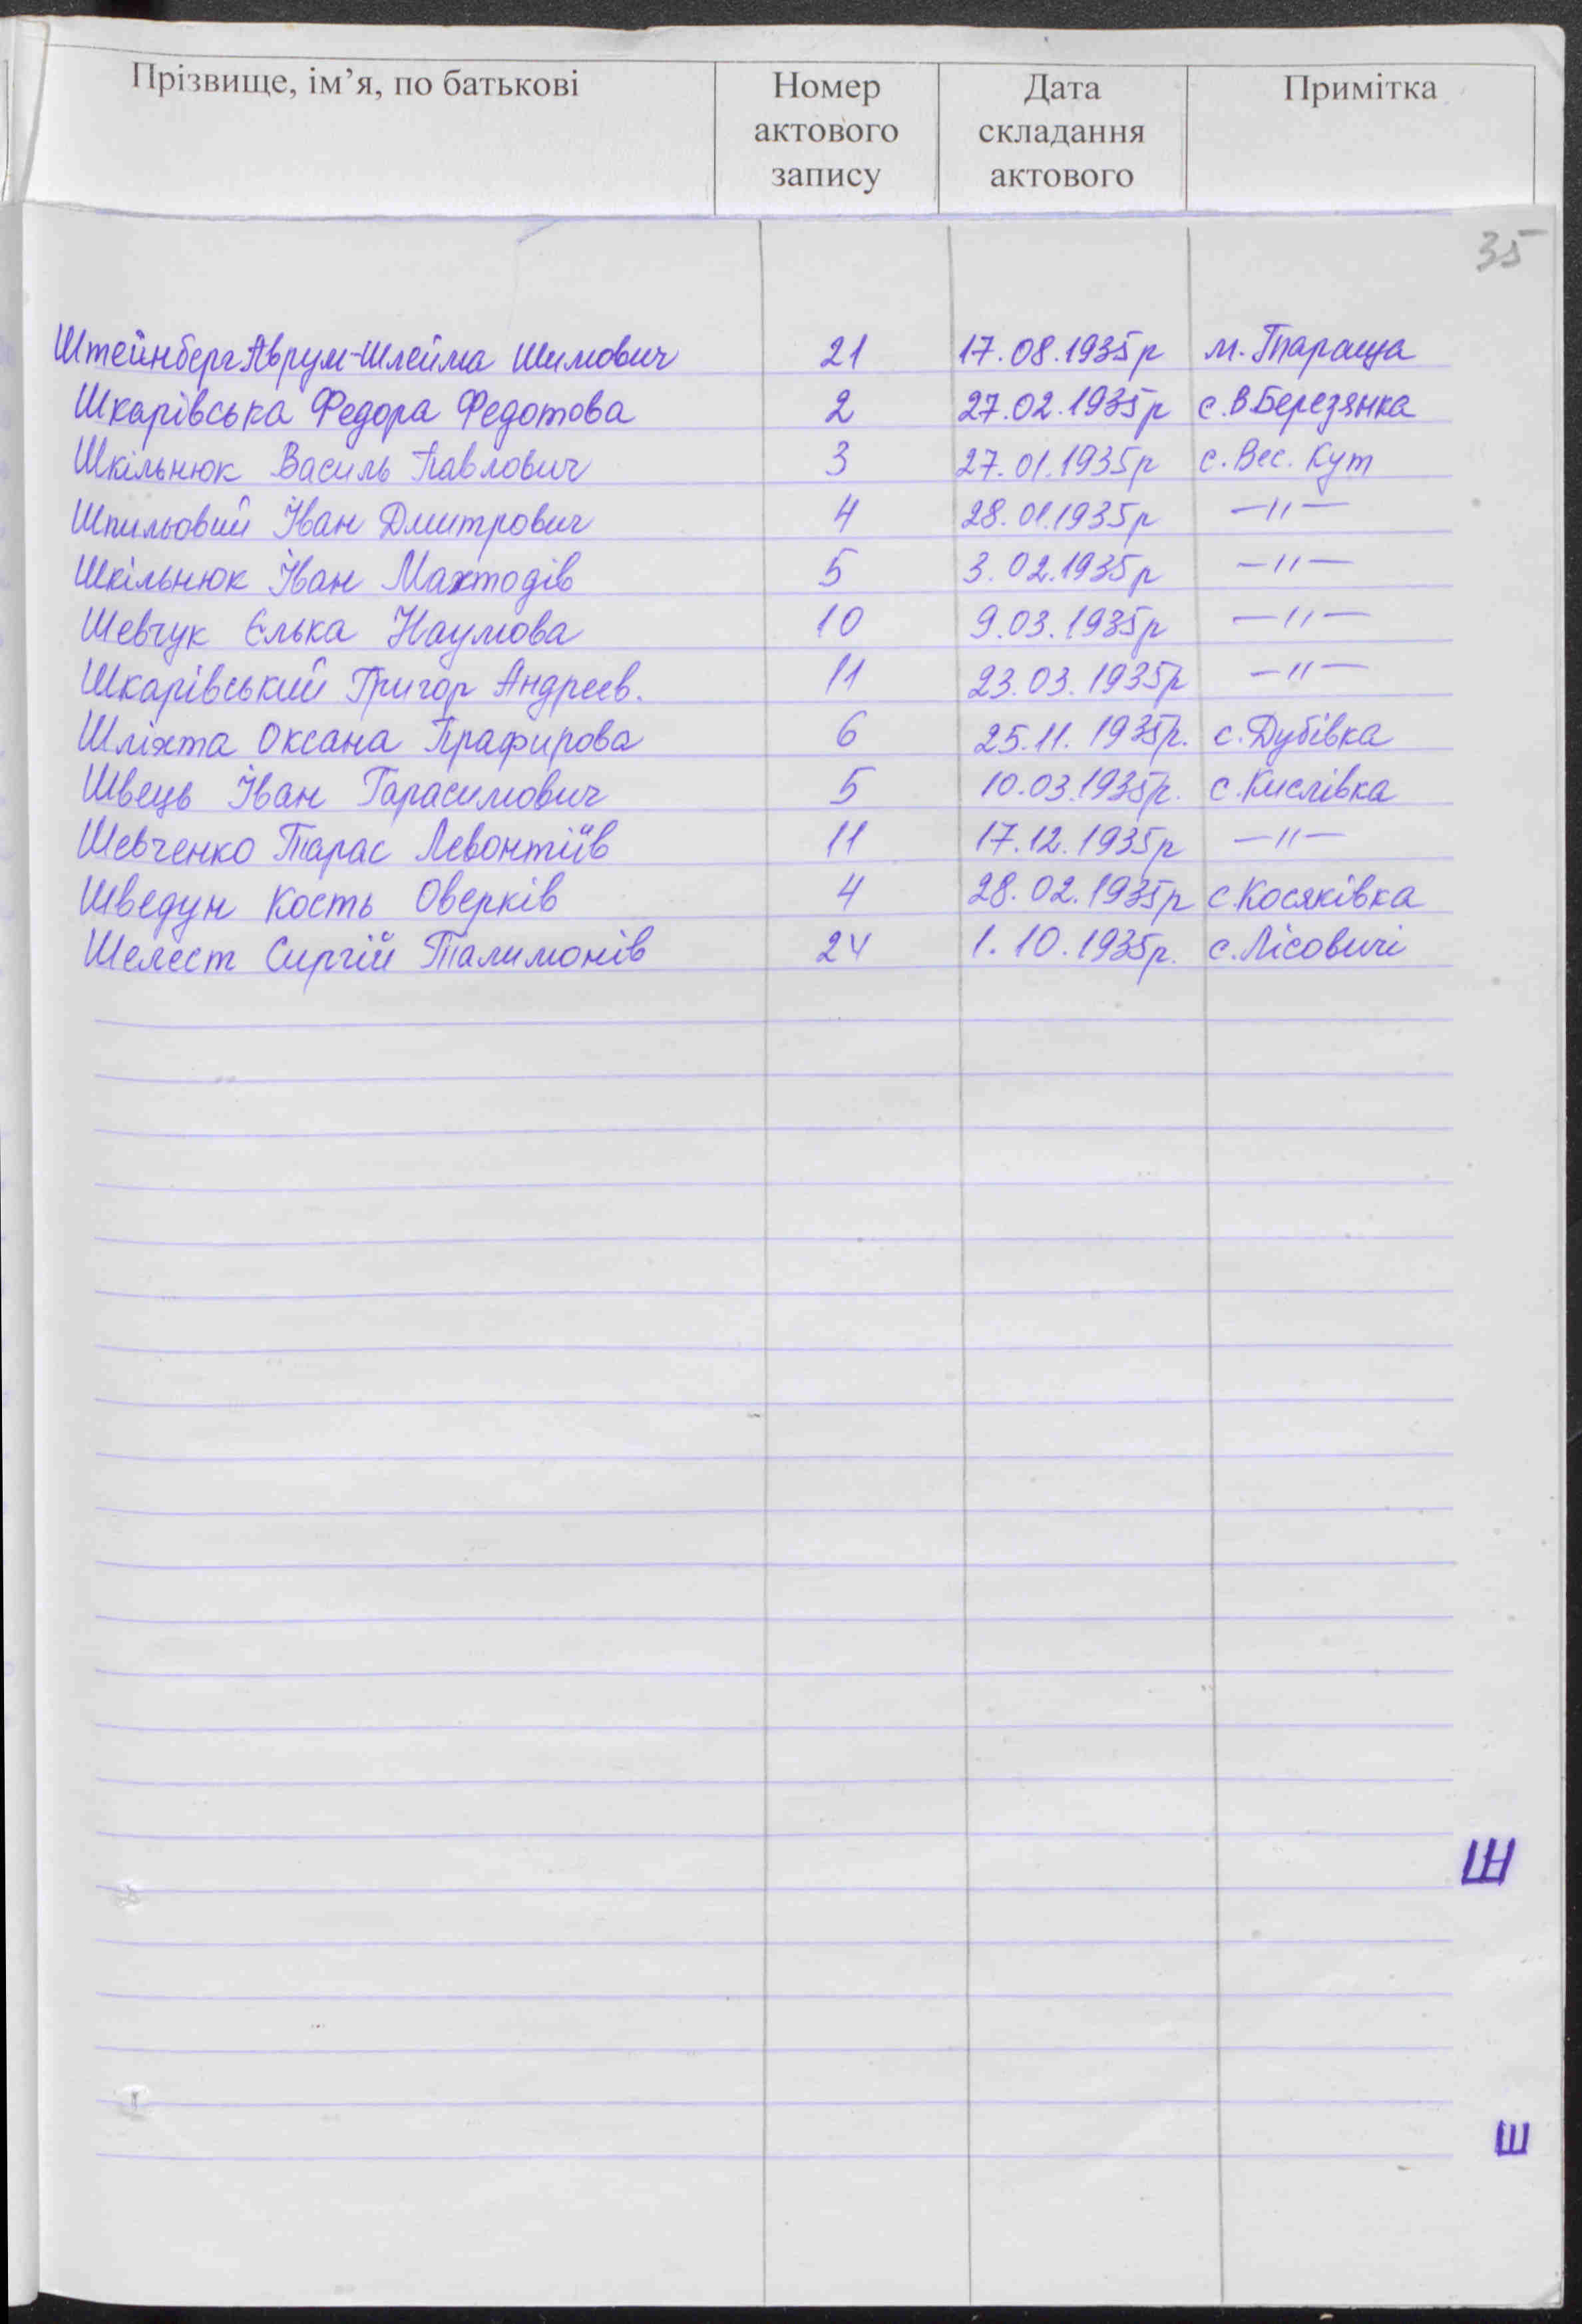 Прізвище, ім’я, по батькові Номер актового запису Дата складання актового Примітка
35
Штейнберг Аврум-Шлейма Шимович 21 17.08.1935р м. Тараща
Шкарівська Федора Федотова 2 27.02.1935р с. В Березянка
Шкільнюк Василь Павлович 3 27.01.1935р с. Вес. Кут
Шпильовий Іван Дмитрович 4 28.01.1935р —"—
Шкільнюк Іван Махтодів 5 3.02.1935р —"—
Шевчук Єлька Наумова 10 9.03.1935р —"—
Шкарівський Григор Андреев. 11 23.03.1935р —"—
Шліхта Оксана Прафирова 6 25.11.1935р. с. Дубівка
Швець Іван Гарасимович 5 10.03.1935р. с. Кислівка
Шевченко Тарас Левонтіїв 11 17.12.1935р —"—
Шведун Кость Оверків 4 28.02.1935р с. Косяківка
Шелест Сиргій Талимонів 24 1.10.1935р. с. Лісовичі
Ш